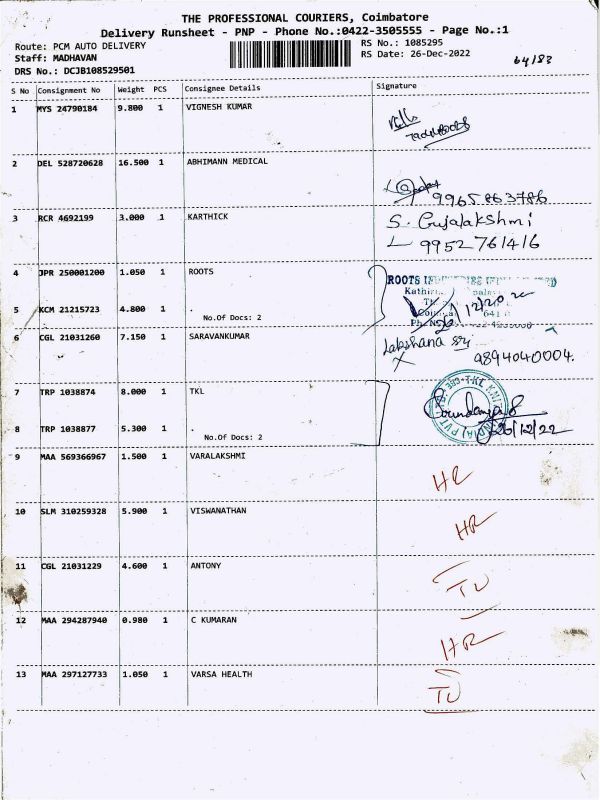 THE PROFESSIONAL COURIERS, Coimbatore
Delivery Runsheet - PNP - Phone No.:0422-3505555 - Page No.:1
Route: PCM AUTO DELIVERY RS No.: 1085295
Staff: MADHAVAN RS Date: 26-Dec-2022 64/83
DRS No.: DCJB108529501
S No Consignment No Weight PCS Consignee Details Signature
1 MYS 24790184 9.800 1 VIGNESH KUMAR
2 DEL 528720628 16.500 1 ABHIMANN MEDICAL
9965863786
3 RCR 4692199 3.000 1 KARTHICK S. Gujalakshmi
9952761416
4 JPR 250001200 1.050 1 ROOTS ROOTS
5 KCM 21215723 4.800 1 .
No.Of Docs: 2
6 CGL 21031260 7.150 1 SARAVANKUMAR Lakshana
9894040004
7 TRP 1038874 8.000 1 TKL
8 TRP 1038877 5.300 1 .
No.Of Docs: 2 26/12/22
9 MAA 569366967 1.500 1 VARALAKSHMI HR
10 SLM 310259328 5.900 1 VISWANATHAN HR
11 CGL 21031229 4.600 1 ANTONY TU
12 MAA 294287940 0.980 1 C KUMARAN HR
13 MAA 297127733 1.050 1 VARSA HEALTH TU